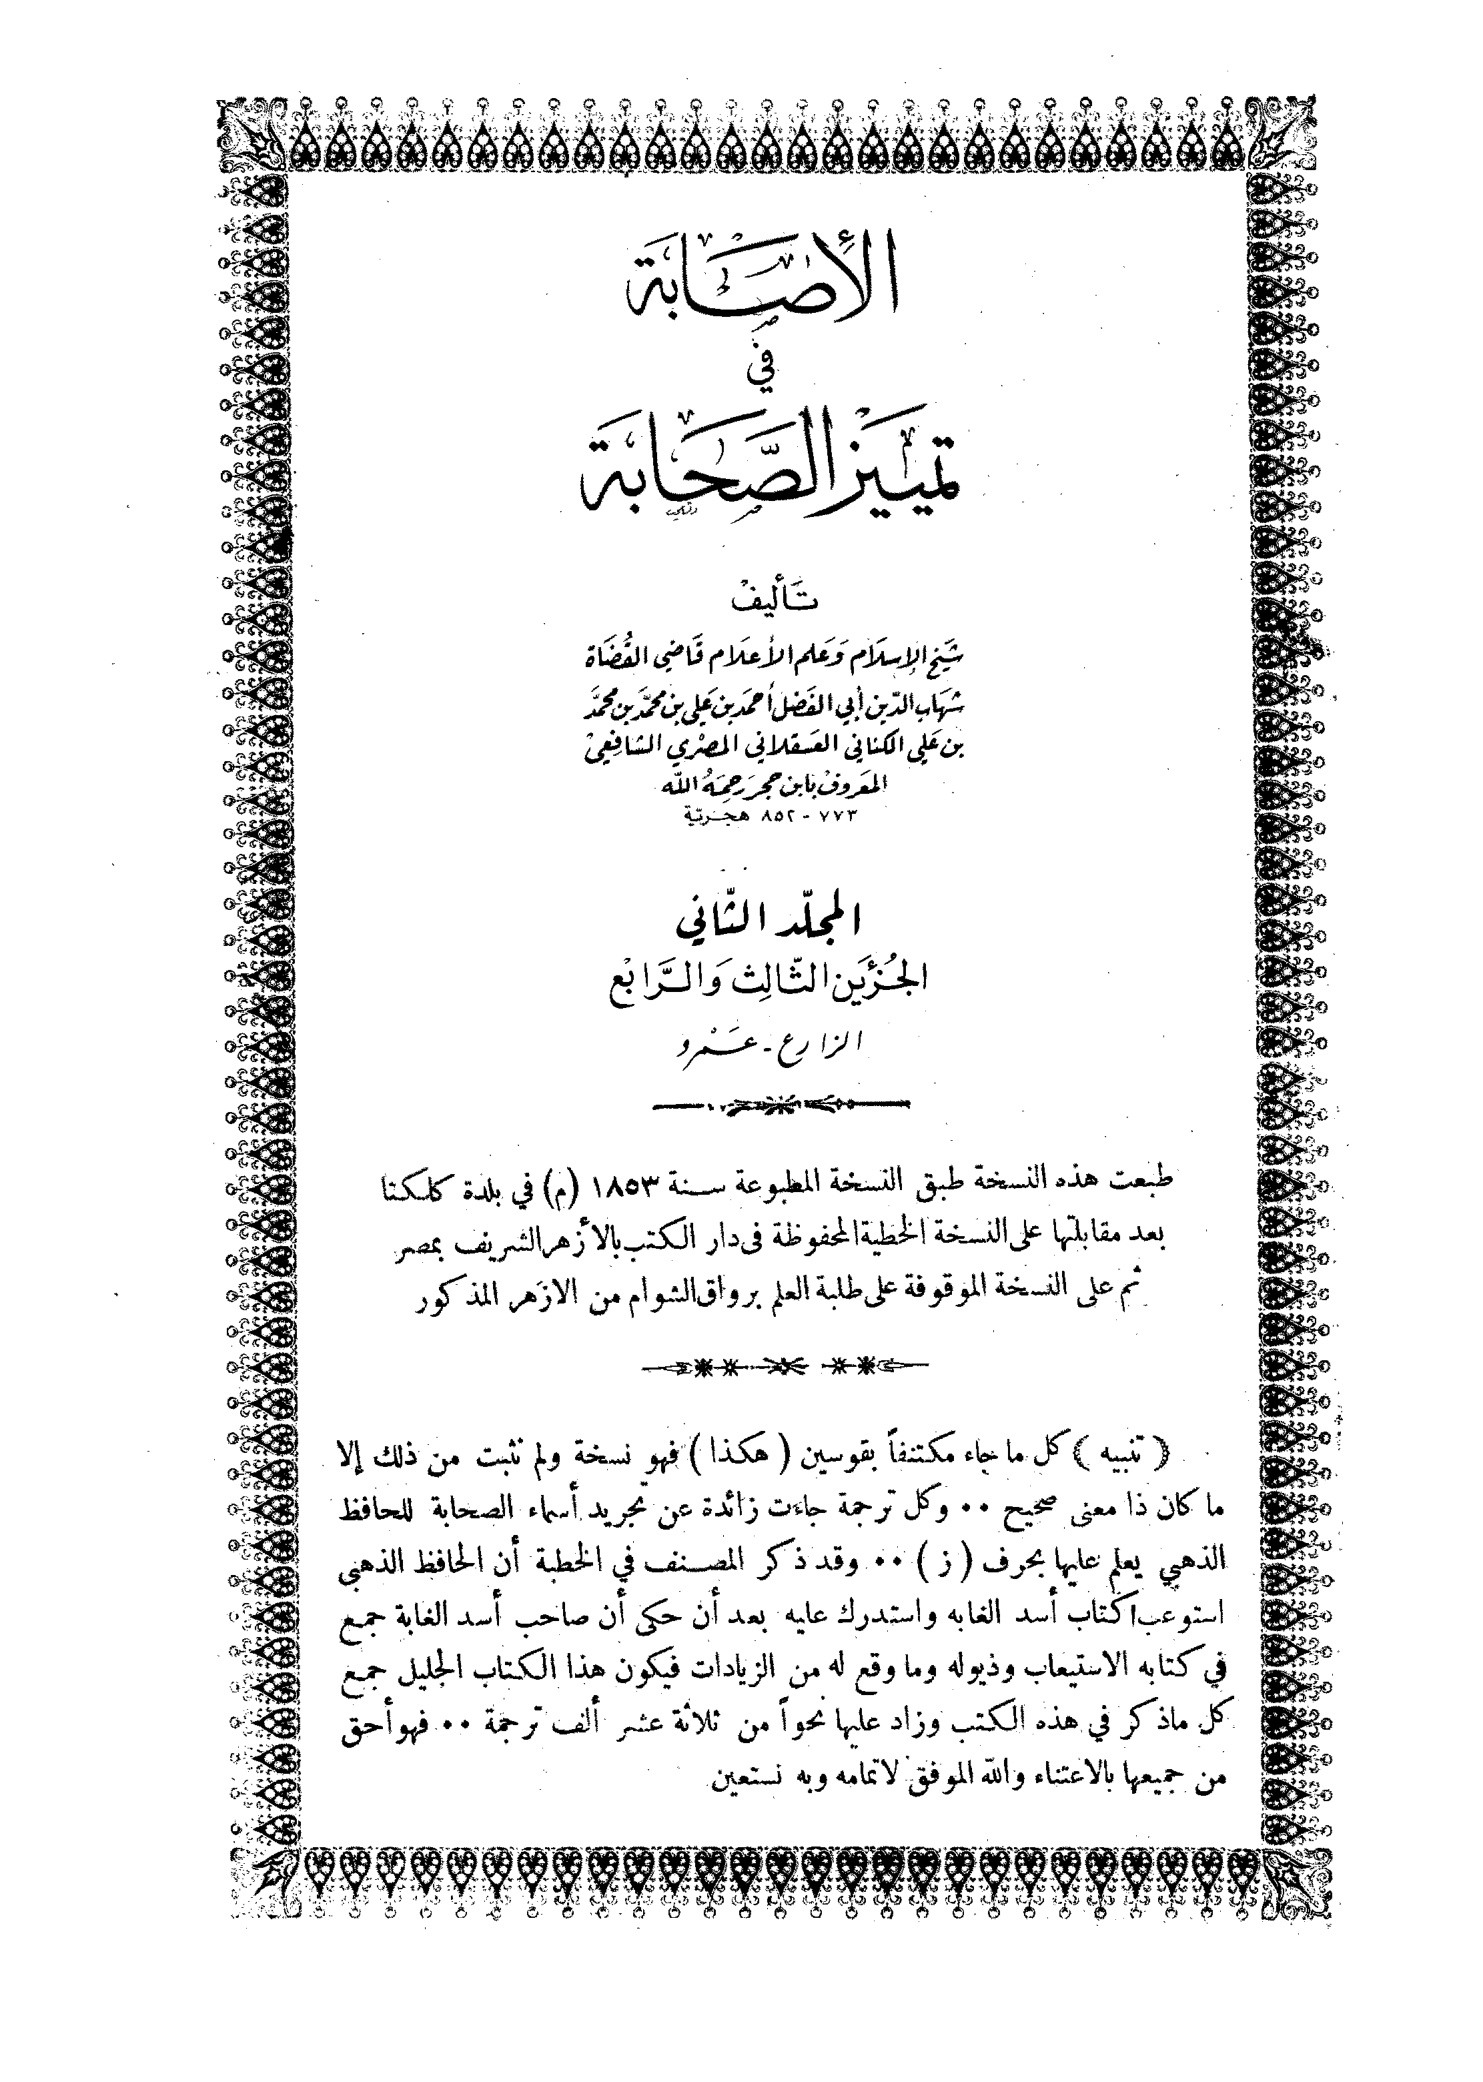 الإصابة
في
تمييز الصحابة
تأليف
شيخ الإسلام وعلم الأعلام قاضي القضاة
شهاب الدين أبي الفضل أحمد بن علي بن محمد بن محمد
بن علي الكناني العسقلاني المصري الشافعي
المعروف بابن حجر رحمه الله
٧٧٣ - ٨٥٢ هجرية
المجلد الثاني
الجزئين الثالث والرابع
الزارع - عمرو
طبعت هذه النسخة طبق النسخة المطبوعة سنة ١٨٥٣ (م) في بلدة كلكتا
بعد مقابلتها على النسخة الخطية المحفوظة في دار الكتب بالأزهر الشريف بمصر
ثم على النسخة الموقوفة على طلبة العلم برواق الشوام من الازهر المذكور
﴿ تنبيه ﴾ كل ما جاء مكتنفاً بقوسين ( هكذا ) فهو نسخة ولم نثبت من ذلك إلا
ما كان ذا معنى صحيح ٠٠ وكل ترجمة جاءت زائدة عن تجريد أسماء الصحابة للحافظ
الذهبي يعلم عليها بحرف ( ز ) ٠٠ وقد ذكر المصنف في الخطبة أن الحافظ الذهبي
استوعب كتاب أسد الغابه واستدرك عليه بعد أن حكى أن صاحب أسد الغابة جمع
في كتابه الاستيعاب وذيوله وما وقع له من الزيادات فيكون هذا الكتاب الجليل جمع
كل ماذكر في هذه الكتب وزاد عليها نحواً من ثلاثة عشر ألف ترجمة ٠٠ فهو أحق
من جميعها بالاعتناء والله الموفق لاتمامه وبه نستعين